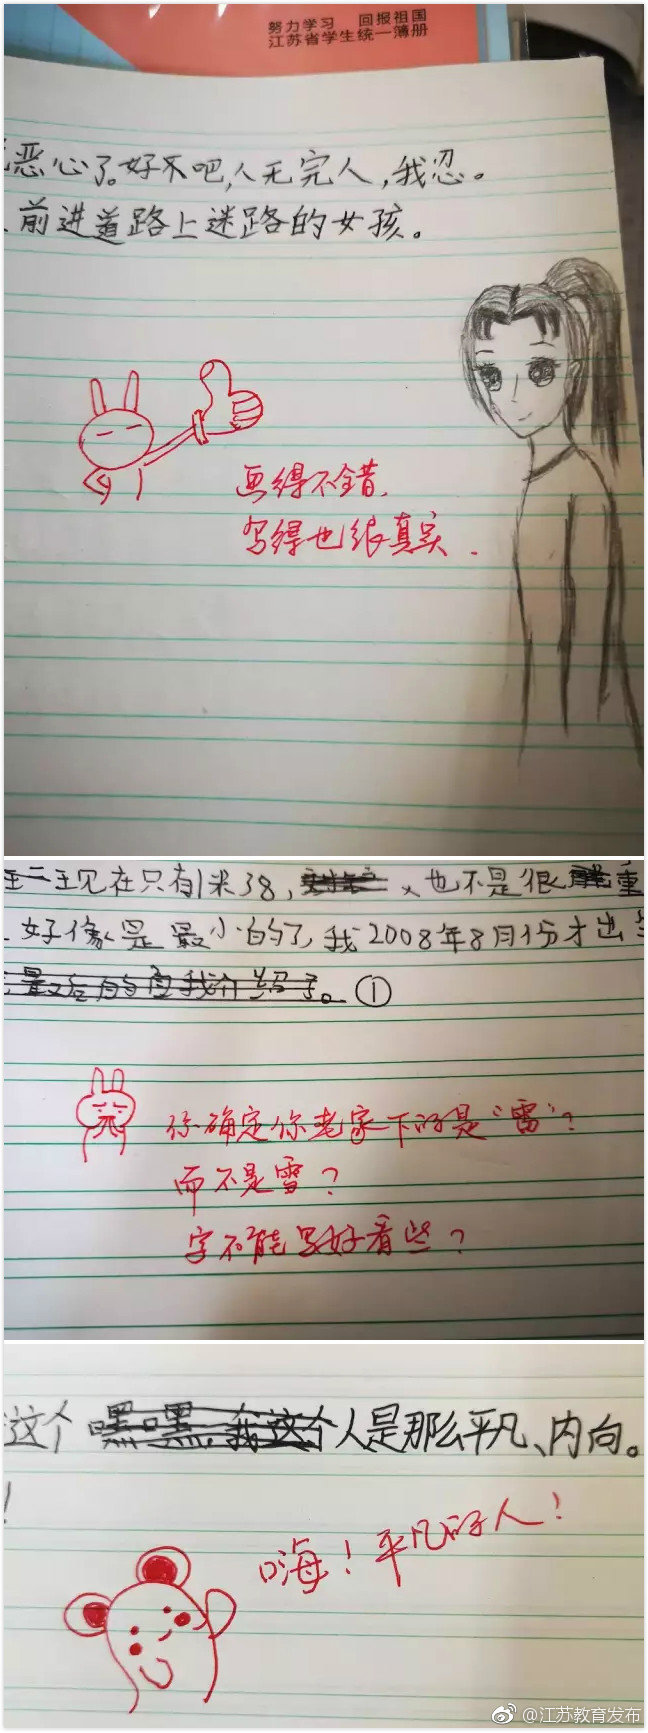 努力学习 回报祖国
江苏省学生统一簿册
恶心了。好不吧,人无完人,我忍。
前进道路上迷路的女孩。
画得不错,
写得也很真实.
现在只有1米38, 也不是很重
好像是最小的了,我2008年8月份才出生
最后的自我介绍了。①
你确定你老家下的是“雷”?
而不是雪?
字不能写好看些?
这个嘿嘿,我这个人是那么平凡、内向。
!
嗨!平凡的人!
@江苏教育发布